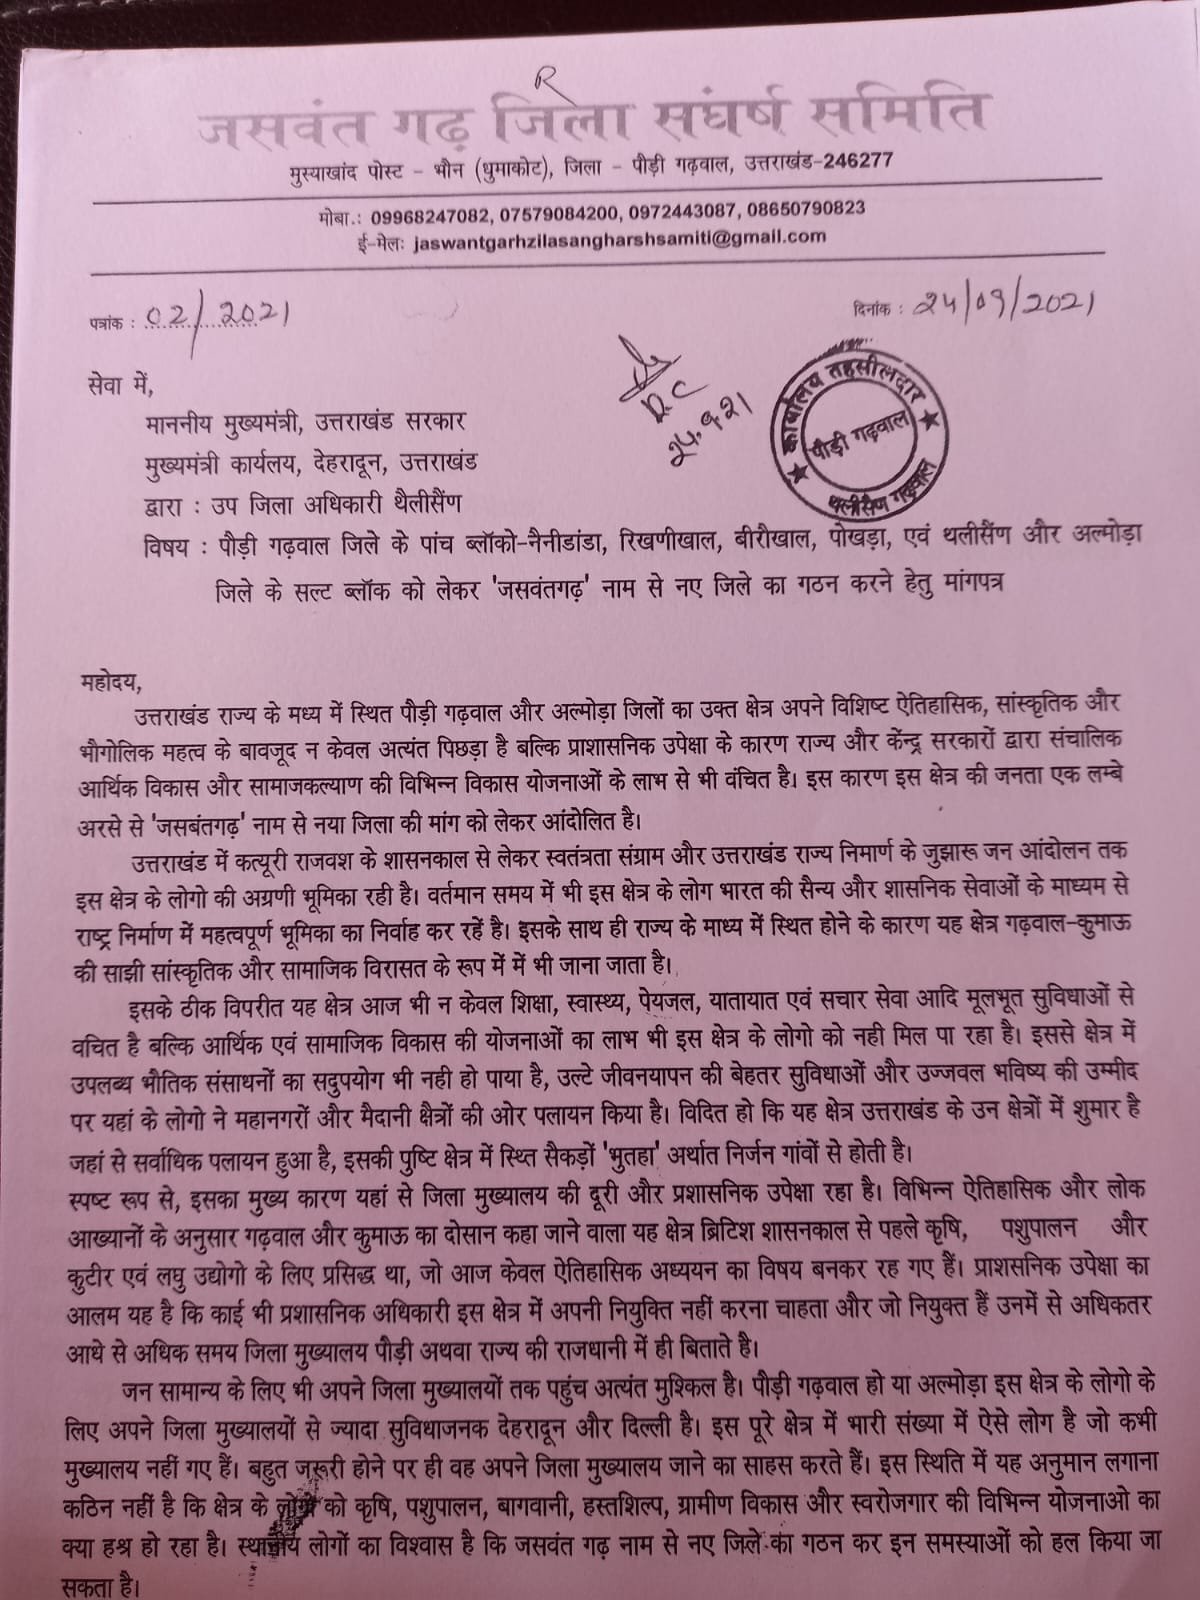 R
जसवंत गढ़ जिला संघर्ष समिति
मुस्याखांद पोस्ट - भौन (धुमाकोट), जिला - पौड़ी गढ़वाल, उत्तराखंड-246277
मोबा.: 09968247082, 07579084200, 0972443087, 08650790823
ई-मेलः jaswantgarhzilasangharshsamiti@gmail.com
पत्रांक : 02/2021
दिनांक : 24/09/2021
सेवा में,
माननीय मुख्यमंत्री, उत्तराखंड सरकार
मुख्यमंत्री कार्यलय, देहरादून, उत्तराखंड
द्वारा : उप जिला अधिकारी थैलीसैंण
R.C
24.9.21
कार्यालय तहसीलदार
पौड़ी गढ़वाल
थलीसैण गढ़वाल
विषय : पौड़ी गढ़वाल जिले के पांच ब्लॉको-नैनीडांडा, रिखणीखाल, बीरौखाल, पोखड़ा, एवं थलीसैंण और अल्मोड़ा
जिले के सल्ट ब्लॉक को लेकर 'जसवंतगढ़' नाम से नए जिले का गठन करने हेतु मांगपत्र
महोदय,
उत्तराखंड राज्य के मध्य में स्थित पौड़ी गढ़वाल और अल्मोड़ा जिलों का उक्त क्षेत्र अपने विशिष्ट ऐतिहासिक, सांस्कृतिक और
भौगोलिक महत्व के बावजूद न केवल अत्यंत पिछड़ा है बल्कि प्राशासनिक उपेक्षा के कारण राज्य और केंन्द्र सरकारों द्वारा संचालिक
आर्थिक विकास और सामाजकल्याण की विभिन्न विकास योजनाओं के लाभ से भी वंचित है। इस कारण इस क्षेत्र की जनता एक लम्बे
अरसे से 'जसबंतगढ़' नाम से नया जिला की मांग को लेकर आंदोलित है।
उत्तराखंड में कत्यूरी राजवश के शासनकाल से लेकर स्वतंत्रता संग्राम और उत्तराखंड राज्य निमार्ण के जुझारू जन आंदोलन तक
इस क्षेत्र के लोगो की अग्रणी भूमिका रही है। वर्तमान समय में भी इस क्षेत्र के लोग भारत की सैन्य और शासनिक सेवाओं के माध्यम से
राष्ट्र निर्माण में महत्वपूर्ण भूमिका का निर्वाह कर रहें है। इसके साथ ही राज्य के माध्य में स्थित होने के कारण यह क्षेत्र गढ़वाल-कुमाऊ
की साझी सांस्कृतिक और सामाजिक विरासत के रूप में में भी जाना जाता है।
इसके ठीक विपरीत यह क्षेत्र आज भी न केवल शिक्षा, स्वास्थ्य, पेयजल, यातायात एवं सचार सेवा आदि मूलभूत सुविधाओं से
वचित है बल्कि आर्थिक एवं सामाजिक विकास की योजनाओं का लाभ भी इस क्षेत्र के लोगो को नही मिल पा रहा है। इससे क्षेत्र में
उपलब्ध भौतिक संसाधनों का सदुपयोग भी नही हो पाया है, उल्टे जीवनयापन की बेहतर सुविधाओं और उज्जवल भविष्य की उम्मीद
पर यहां के लोगो ने महानगरों और मैदानी क्षैत्रों की ओर पलायन किया है। विदित हो कि यह क्षेत्र उत्तराखंड के उन क्षेत्रों में शुमार है
जहां से सर्वाधिक पलायन हुआ है, इसकी पुष्टि क्षेत्र में स्थ्ति सैकड़ों 'भुतहा' अर्थात निर्जन गांवों से होती है।
स्पष्ट रूप से, इसका मुख्य कारण यहां से जिला मुख्यालय की दूरी और प्रशासनिक उपेक्षा रहा है। विभिन्न ऐतिहासिक और लोक
आख्यानों के अनुसार गढ़वाल और कुमाऊ का दोसान कहा जाने वाला यह क्षेत्र ब्रिटिश शासनकाल से पहले कृषि, पशुपालन और
कुटीर एवं लघु उद्योगो के लिए प्रसिद्ध था, जो आज केवल ऐतिहासिक अध्ययन का विषय बनकर रह गए हैं। प्राशसनिक उपेक्षा का
आलम यह है कि काई भी प्रशासनिक अधिकारी इस क्षेत्र में अपनी नियुक्ति नहीं करना चाहता और जो नियुक्त हैं उनमें से अधिकतर
आधे से अधिक समय जिला मुख्यालय पौड़ी अथवा राज्य की राजधानी में ही बिताते है।
जन सामान्य के लिए भी अपने जिला मुख्यालयों तक पहुंच अत्यंत मुश्किल है। पौड़ी गढ़वाल हो या अल्मोड़ा इस क्षेत्र के लोगो के
लिए अपने जिला मुख्यालयों से ज्यादा सुविधाजनक देहरादून और दिल्ली है। इस पूरे क्षेत्र में भारी संख्या में ऐसे लोग है जो कभी
मुख्यालय नहीं गए हैं। बहुत जरूरी होने पर ही वह अपने जिला मुख्यालय जाने का साहस करते हैं। इस स्थिति में यह अनुमान लगाना
कठिन नहीं है कि क्षेत्र के लोगो को कृषि, पशुपालन, बागवानी, हस्तशिल्प, ग्रामीण विकास और स्वरोजगार की विभिन्न योजनाओ का
क्या हश्र हो रहा है। स्थानीय लोगों का विश्वास है कि जसवंत गढ़ नाम से नए जिले का गठन कर इन समस्याओं को हल किया जा
सकता है।